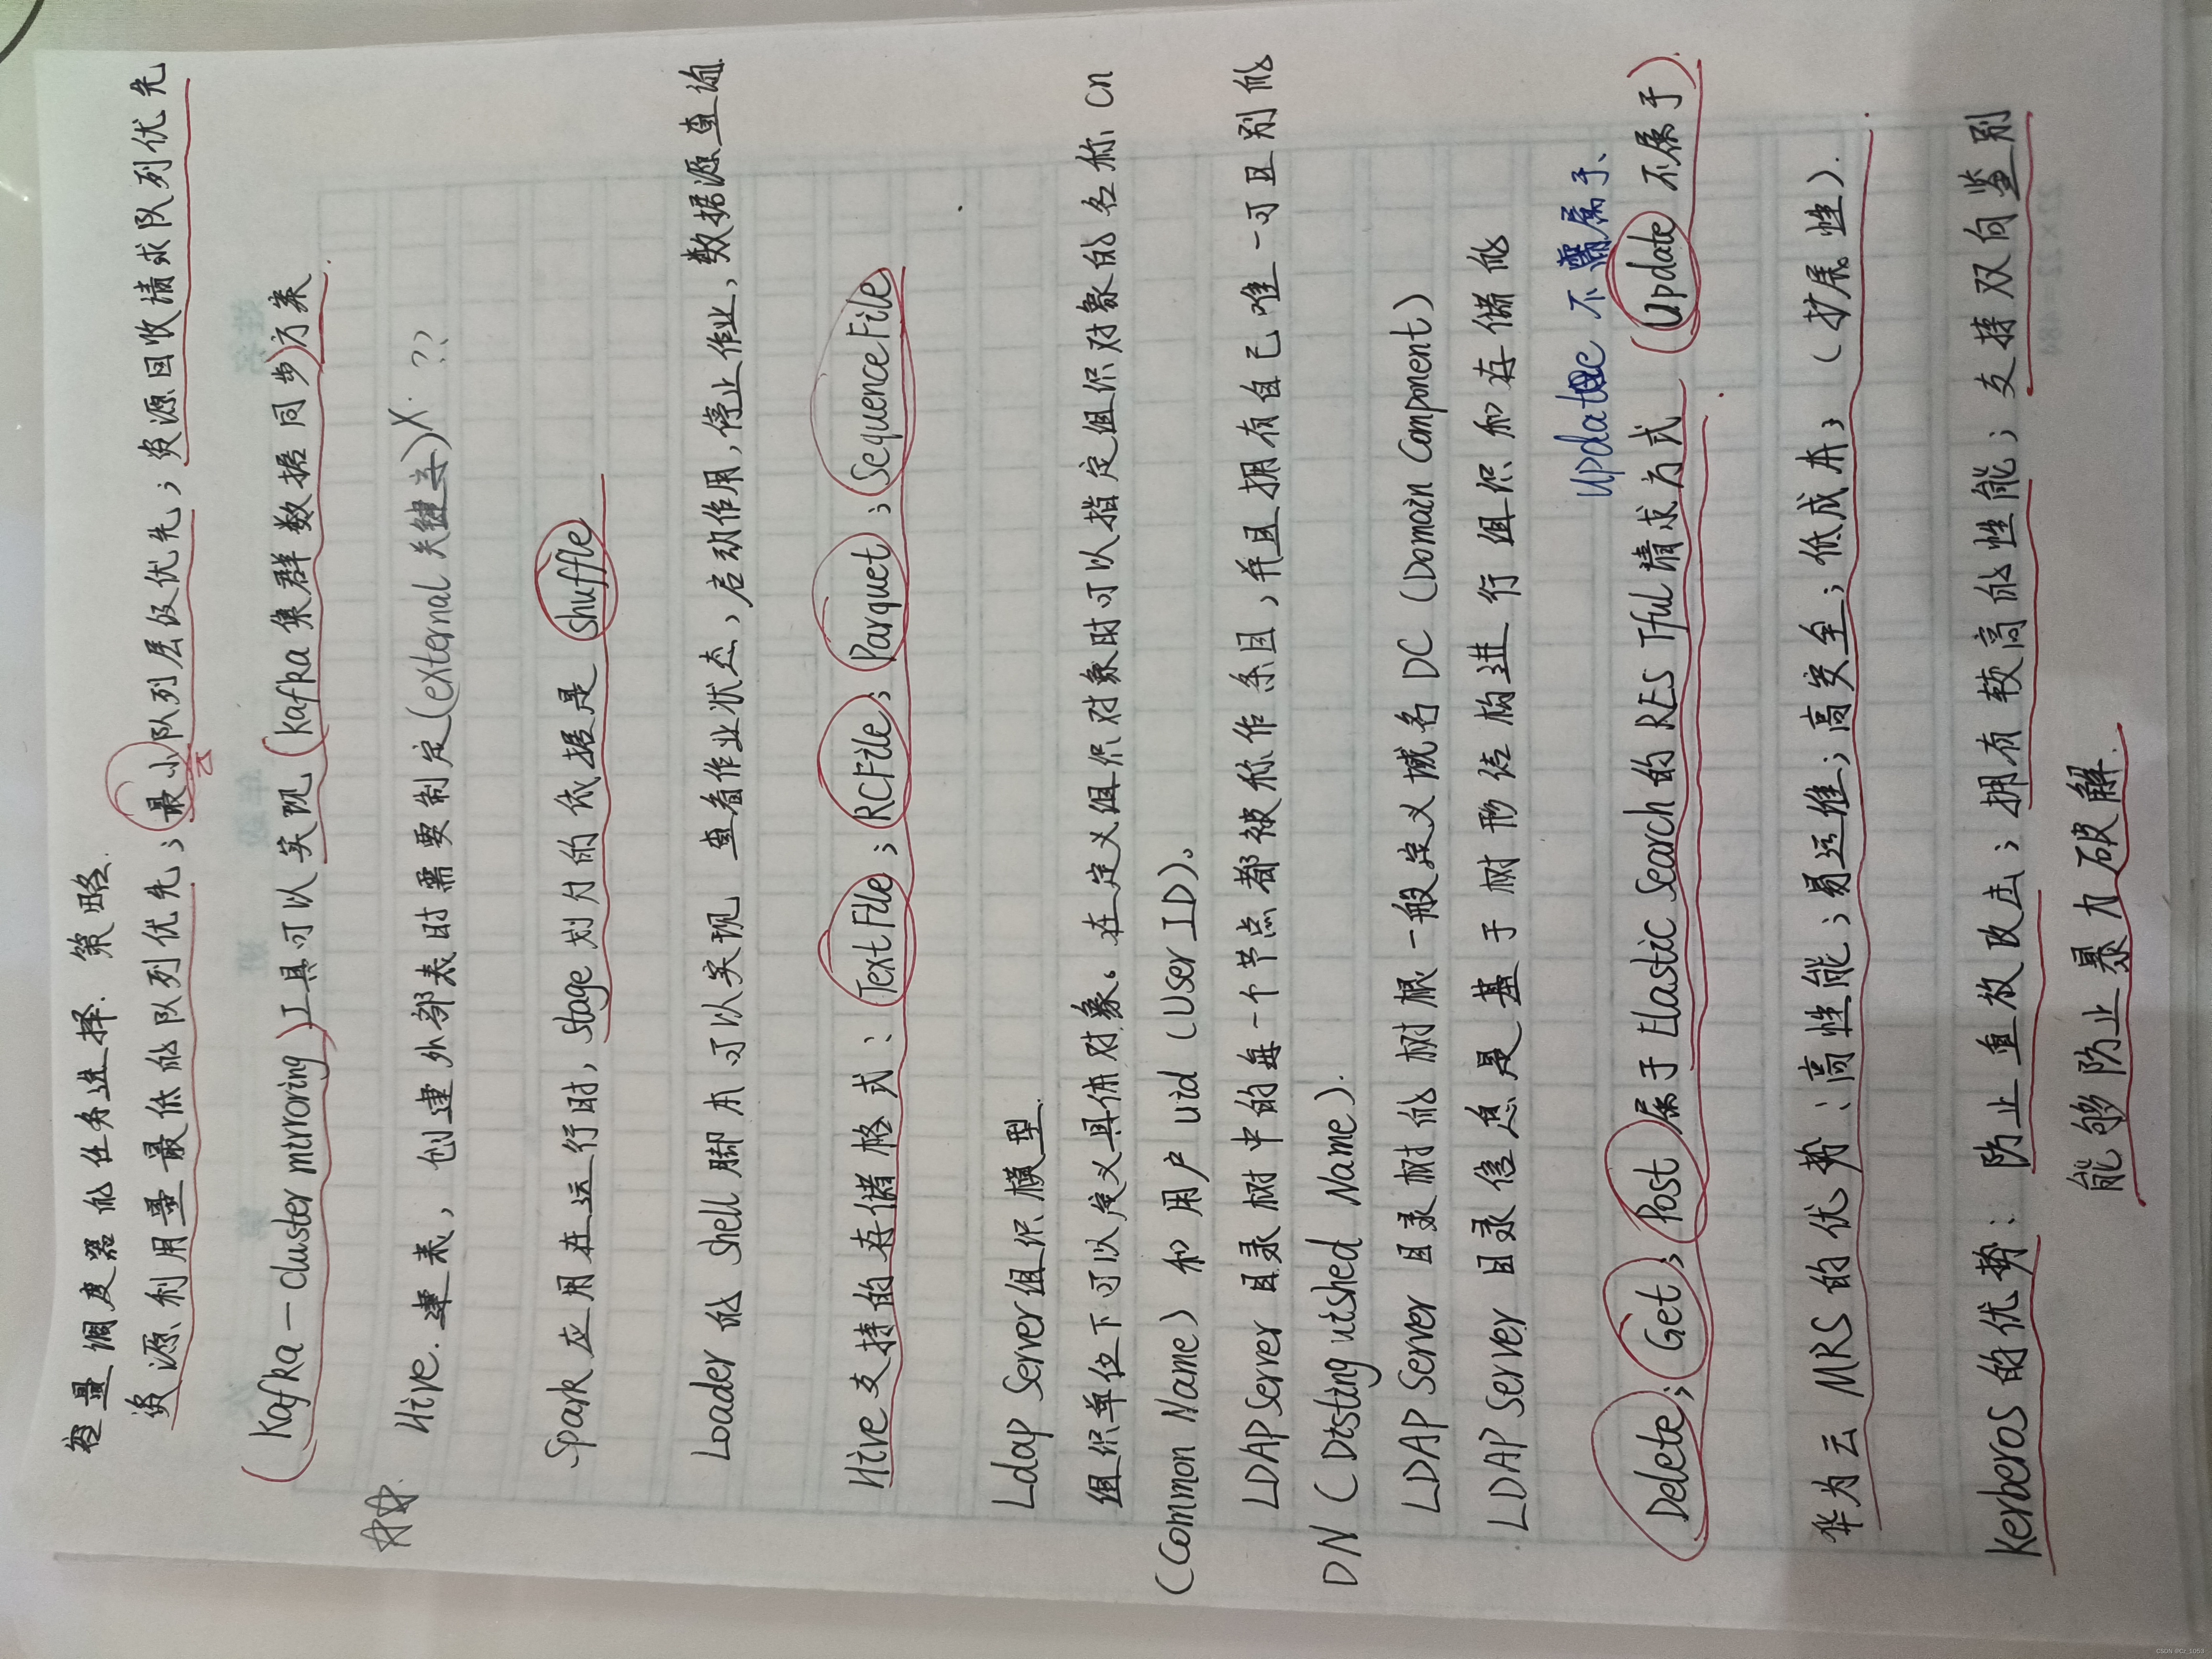 容量调度器的任务选择. 策略.
资源利用量最低的队列优先；最小队列层级优先；资源回收请求队列优先
(Kafka—cluster mirroring)工具可以实现(Kafka集群数据同步)方案.
Hive.建表，创建外部表时需要制定(external 关键字)X. ??
Spark应用在运行时，Stage划分的依据是 shuffle
Loader的 Shell脚本可以实现 查看作业状态，启动作用，停止作业，数据源查询.
Hive支持的存储格式：TextFile；RCFile；Parquet；SequenceFile
Ldap Server组织模型.
组织单位下可以定义具体对象。在定义组织对象时可以指定组织对象的名称 cn
(Common Name) 和用户 uid (User ID)。
LDAP Server 目录树中的每一个节点都被称作条目，并且拥有自己唯一可且别的
DN (Distinguished Name).
LDAP Server 目录树的树根一般定义域名 DC (Domain Component)
LDAP Server 目录信息是基于树形结构进行组织和存储的
Update 不属于、
Delete；Get；Post属于Elastic Search的RESTful请求方式 (Update 不属于).
华为云 MRS 的优势：高性能；易运维；高安全；低成本；(扩展性).
Kerberos的优势：防止重放攻击；拥有较高的性能；支持双向鉴别
能够防止暴力破解.
CSDN @CZ_1050